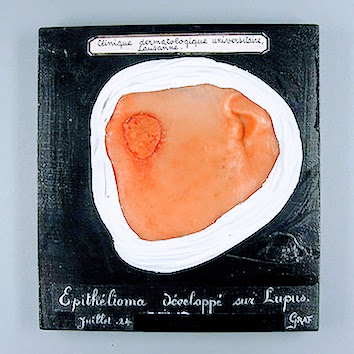 Clinique dermatologique universitaire,
Lausanne.
Epithélioma développé sur Lupus.
Juillet 24 GRAF